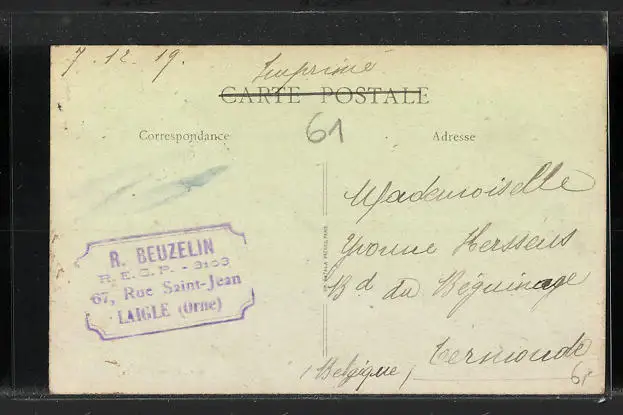 7. 12. 19.
Imprimé
CARTE POSTALE
61
Correspondance
Adresse
Mademoiselle
Yvonne Herssens
Bd du Béguinage
Termonde
(Belgique)
R. BEUZELIN
R. E. C. P. - 3153
67, Rue Saint-Jean
LAIGLE (Orne)
61